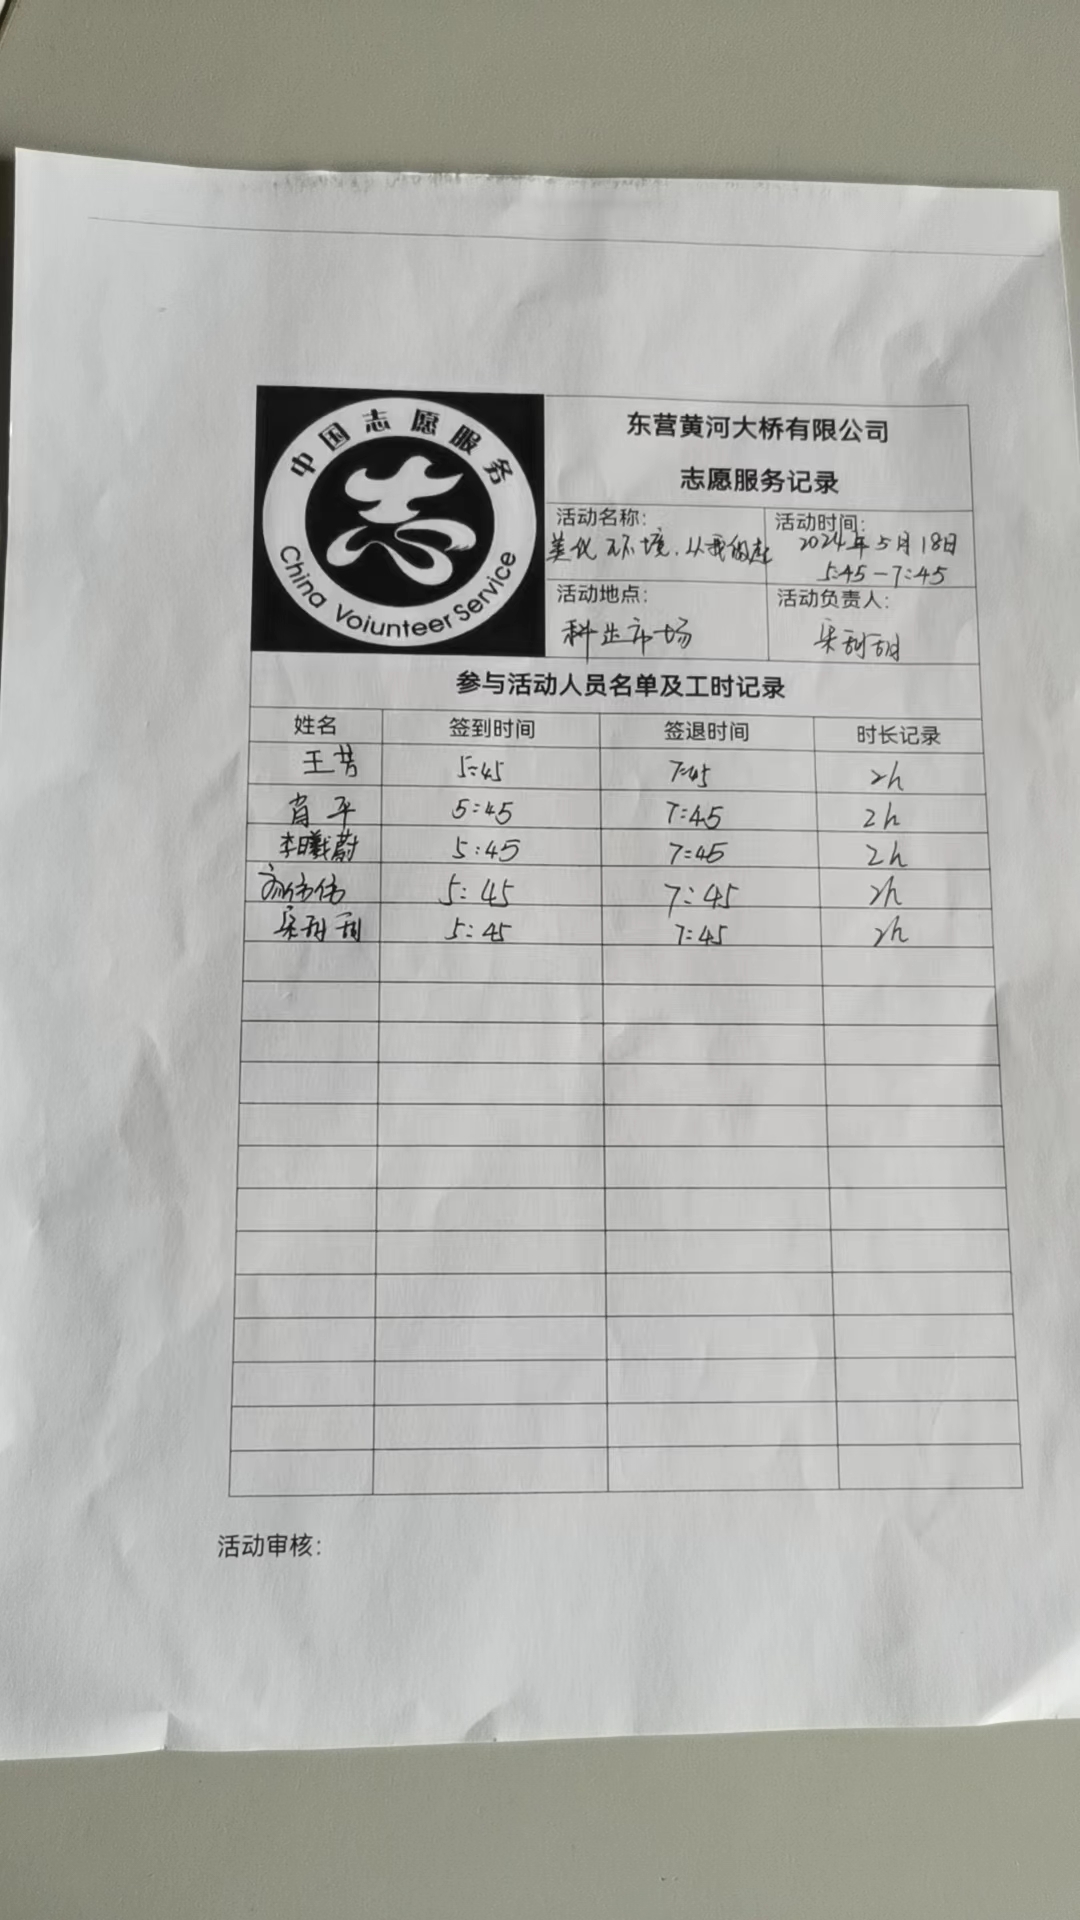 中国志愿服务
China Voiunteer Service
东营黄河大桥有限公司
志愿服务记录
活动名称:
美化环境,从我做起
活动时间:
2024年5月18日
5:45-7:45
活动地点:
科业市场
活动负责人:
参与活动人员名单及工时记录
姓名 签到时间 签退时间 时长记录
王芳 5:45 7:45 2h
肖平 5:45 7:45 2h
李曦蔚 5:45 7:45 2h
5:45 7:45 2h
5:45 7:45 2h
活动审核: